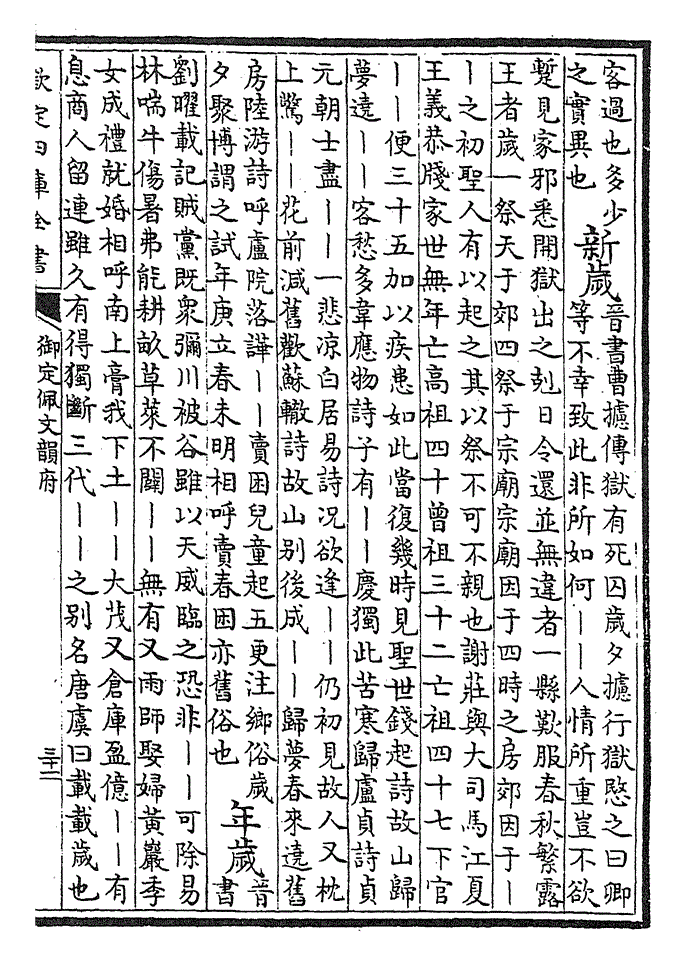 容過也多少
之實異也
新歲
晉書曹攄傳獄有死囚歲夕攄行獄愍之曰卿
等不幸致此非所如何丨丨人情所重豈不欲
蹔見家邪悉開獄出之剋日令還並無違者一縣歎服春秋繁露
王者歲一祭天于郊四祭于宗廟宗廟因于四時之房郊因于丨
丨之初聖人有以起之其以祭不可不親也謝莊與大司馬江夏
王義恭牋家世無年亡高祖四十曾祖三十二亡祖四十七下官
丨丨便三十五加以疾患如此當復幾時見聖世錢起詩故山歸
夢遠丨丨客愁多韋應物詩子有丨丨慶獨此苦寒歸盧貞詩貞
元朝士盡丨丨一悲涼白居易詩况欲逢丨丨仍初見故人又枕
上驚丨丨花前減舊歡蘇轍詩故山别後成丨丨歸夢春來遶舊
房陸游詩呼盧院落譁丨丨賣困兒童起五更注鄉俗歲
夕聚博謂之試年庚立春未明相呼賣春困亦舊俗也
年歲
晉
書
劉曜載記賊黨既衆彌川被谷雖以天威臨之恐非丨丨可除易
林喘牛傷暑弗能耕畝草萊不闢丨丨無有又雨師娶婦黃巖季
女成禮就婚相呼南上膏我下土丨丨大茂又倉庫盈億丨丨有
息商人留連雖久有得獨斷三代丨丨之别名唐虞曰載載歲也
欽定四庫全書
御定佩文韻府
三十二